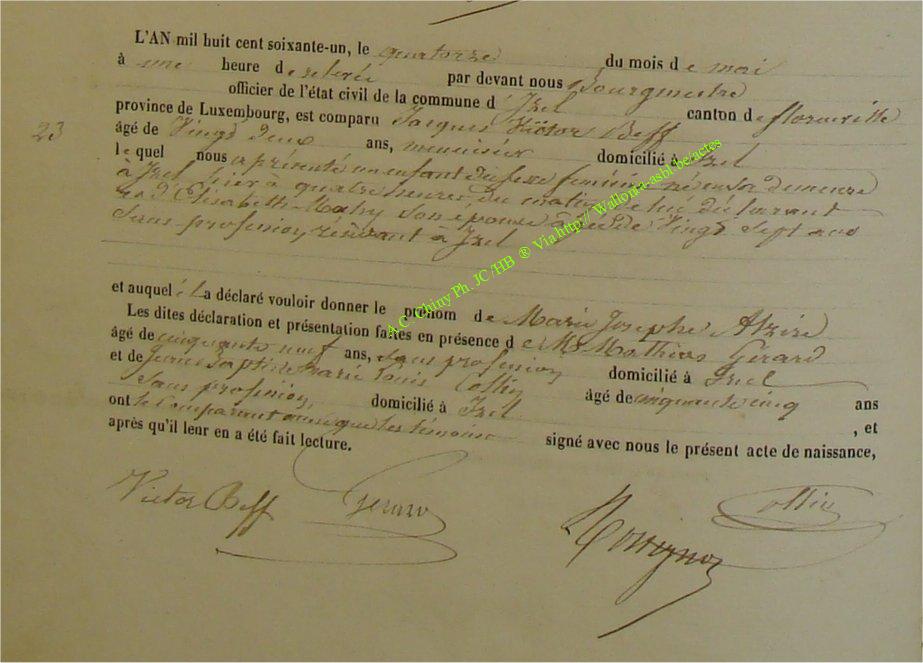 L'AN mil huit cent soixante-un, le quatorze du mois de mai
à une heure de relevée par devant nous Bourgmestre
officier de l'état civil de la commune d'Izel canton de florenville
23
province de Luxembourg, est comparu Jacques Victor Beff
âgé de Vingt deux ans, menuisier domicilié à Izel
lequel nous a présenté un enfant du sexe féminin né en sa demeure
à Izel hier à quatre heures du matin de lui déclarant
et d'Elisabeth Mathy son épouse âgée de Vingt Sept ans
Sans profession, résidant à Izel
et auquel il a déclaré vouloir donner le prénom de Marie Josephe Alzire
Les dites déclaration et présentation faites en présence de Mr Mathias Gérard
âgé de cinquante neuf ans, sans profession domicilié à Izel
et de Jean Baptiste Marie Louis Collin âgé de cinquante cinq ans
Sans profession, domicilié à Izel , et
ont le comparant ainsi que les témoins signé avec nous le présent acte de naissance,
après qu'il leur en a été fait lecture.
Victor Beff Gerard Collin
A.C. Chiny Ph. JC/HB ® Via http://Wallonia-asbl.be/actes